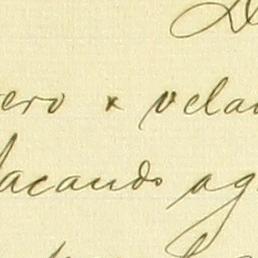 D
ero x vela
acando ag